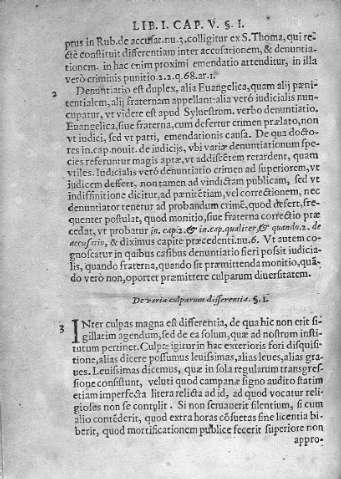 LIB. I. CAP. V. § I.
prus in Rub. de accusat. nu. 3. colligitur ex S. Thoma, qui re-
ctè constituit differentiam inter accusationem, & denuntia-
tionem. in hac enim proximi emendatio attenditur, in illa
verò criminis punitio. 2. 2. q. 68. ar. 1.
2 Denuntiatio est duplex, alia Euangelica, quam alij pœni-
tentialem, alij fraternam appellant: alia verò iudicialis nun-
cupatur, vt videre est apud Syluestrum. verbo denuntiatio.
Euangelica, siue fraterna, cum defertur crimen prælato, non
vt iudici, sed vt patri, emendationis causa. De qua docto-
res in cap. nouit. de iudicijs, vbi variæ denuntiationum spe-
cies referuntur magis aptæ, vt addiscētem retardent, quam
vtiles. Iudicialis verò denuntiatio crimen ad superiorem, vt
iudicem deffert, non tamen ad vindictam publicam, sed vt
indiffinitione dicitur, ad pœnitētiam, vel correctionem, nec
denuntiator tenetur ad probandum crimē, quod defert, fre-
quenter postulat, quod monitio, siue fraterna correctio præ
cedat, vt probatur in cap. 2. & in cap. qualiter, & quando. 2. de
accusatio, & diximus capite præcedenti. nu. 6. Vt autem co-
gnoscatur in quibus casibus denuntiatio fieri possit iudicia-
lis, quando fraterna, quando sit præmittenda monitio, quā-
do verò non, oportet præmittere culparum diuersitatem.
De varia culparum differentia. § I.
3 INter culpas magna est differentia, de qua hic non erit si-
gillatim agendum, sed de ea solum, quæ ad nostrum insti-
tutum pertinet. Culpæ igitur in hac exteriori fori disquisi-
tione, alias dicere possumus leuissimas, alias leues, alias gra-
ues. Leuissimas dicemus, quæ in sola regularum transgres-
sione consistunt, veluti quod campanæ signo audito statim
etiam imperfecta litera relicta ad id, ad quod vocatur reli-
gioses non se contulit. Si non seruauerit silentium, si cum
alio contēderit, quod extra horas cōsuetas sine licentia bi-
berit, quod mortificationem publice fecerit superiore non
appro-